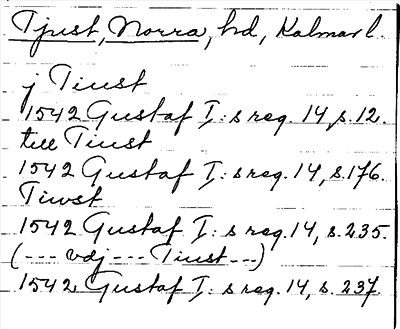 Tjust, Norra, hd, Kalmar l.
j Tiust
1542 Gustaf I:s reg. 14, s. 12.
till Tiust
1542 Gustaf I:s reg. 14, s. 176.
Tiwst
1542 Gustaf I:s reg. 14, s. 235.
(--- vdj --- Tiust ---)
1542 Gustaf I:s reg. 14, s. 237